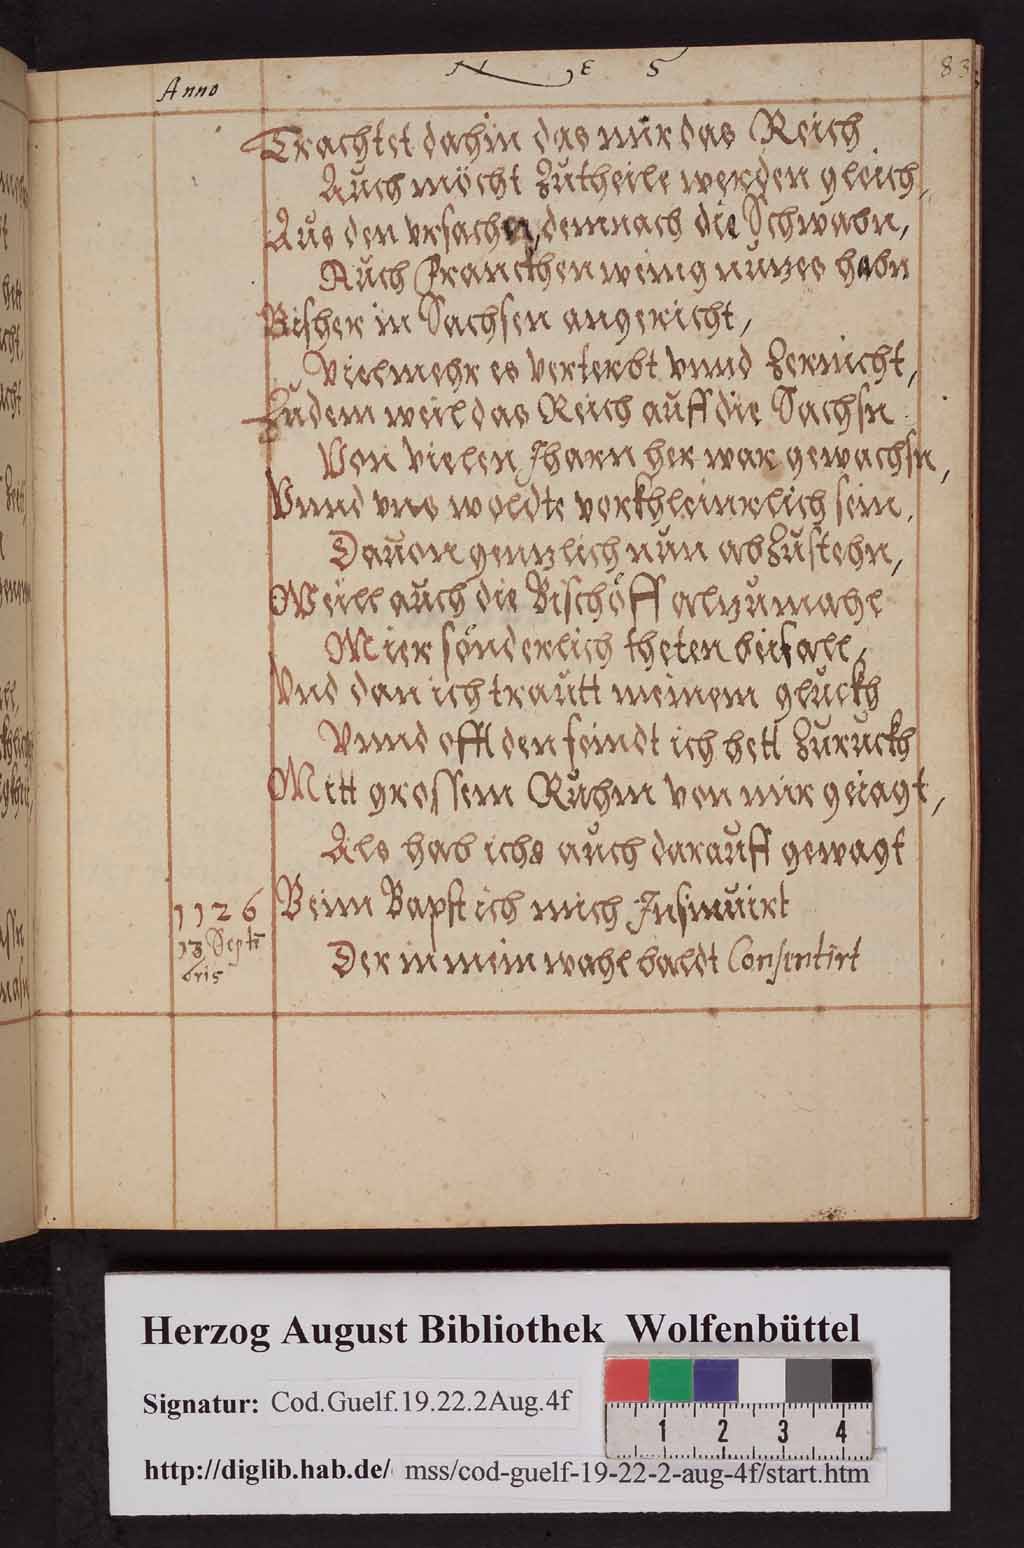 Anno
N E S
83
Trachtet dahin das mir das Reich
Auch möcht zutheile werden gleich,
Aus den vrsachen, demnach die Schwabn,
Auch Franckhen wenig nuzes habn
Bisher in Sachsen angericht,
Vielmehr es verterbt vnnd zernicht,
Zudem weil das Reich auff die Sachsn
Von vielen Jharn her war gewachsn,
Vnnd vns woldte verkhleinrlich sein,
Dauon genzlich nun abzustehn,
Weill auch die Bischöff alzumahl
Mier sönderlich theten beifall,
Vnd dan ich trautt meinem gluckh
Vnnd offt den feindt ich hett zuruckh
Mitt grossem Ruhm von mir geiagt,
Als hab ichs auch darauff gewagt
1126
13 Septē
bris
Beim Bapst ich mich Insinuirt
Der in mein wahl baldt Consentirt
Herzog August Bibliothek Wolfenbüttel
Signatur: Cod.Guelf.19.22.2Aug.4f
1 2 3 4
http://diglib.hab.de/ mss/cod-guelf-19-22-2-aug-4f/start.htm